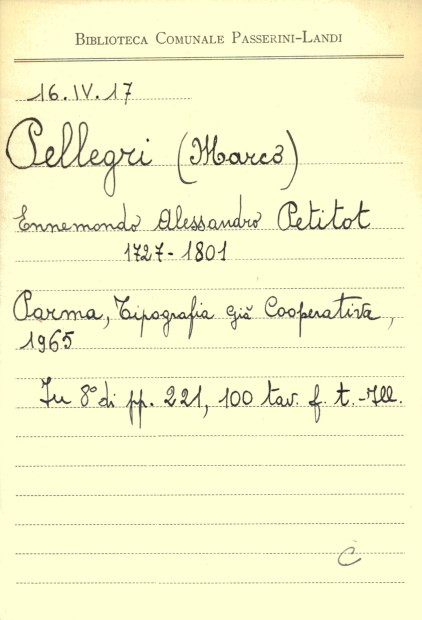 Biblioteca Comunale Passerini-Landi
16.IV.17
Pellegri (Marco)
Ennemondo Alessandro Petitot
1727-1801
Parma, Tipografia già Cooperativa,
1965
In 8° di pp. 221, 100 tav. f. t.-Ill.
C